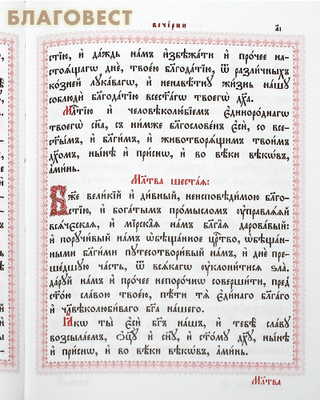 БЛАГОВЕСТ
вече́рни
а҃і
стїю, и҆ да́ждь на́мъ и҆збѣжа́ти и҆ про́чее на-
стоѧ́щагѡ днѐ, твоє́ю благода́тїю, ѿ разли́чныхъ
ко́зней лꙋка́вагѡ, и҆ ненавѣ́тнꙋ жи́знь на́шꙋ
соблюдѝ благода́тїю всест҃а́гѡ твоегѡ̀ дх҃а.
Мл҃тїю и҆ человѣколю́бїемъ є҆диноро́днагѡ
твоегѡ̀ сн҃а, съ ни́мже благослове́нъ є҆сѝ, со все-
ст҃ы́мъ, и҆ бл҃ги́мъ, и҆ животворѧ́щимъ твои́мъ
дх҃омъ, ны́нѣ и҆ при́снѡ, и҆ во вѣ́ки вѣкѡ́въ,
а҆ми́нь.
Мл҃тва шеста́ѧ:
Бж҃е вели́кїй и҆ ди́вный, неисповѣди́мою бл҃го-
стїю, и҆ бога́тымъ про́мысломъ ᲂу҆правлѧ́ѧй
всѧ́чєскаѧ, и҆ мїрска̑ѧ на́мъ бл҃га̑ѧ дарова́вый:
и҆ порꙋчи́вый на́мъ ѡ҆бѣща́нное црⷭ҇тво, ѡ҆бѣща́н-
ными бл҃ги́ми пꙋтесотвори́вый на́мъ, и҆ днѐ пре-
ше́дшꙋю ча́сть, ѿ всѧ́кагѡ ᲂу҆клони́тисѧ ѕла̀,
да́рꙋй на́мъ и҆ про́чее непоро́чнѡ соверши́ти, пред̾
ст҃о́ю сла́вою твоє́ю, пѣ́ти тѧ̀ є҆ди́наго бл҃га́го
и҆ чл҃вѣколюби́ваго бг҃а на́шего.
Ꙗ҆́кѡ ты̀ є҆сѝ бг҃ъ на́шъ, и҆ тебѣ̀ сла́вꙋ
возсыла́емъ, ѻ҆ц҃ꙋ̀ и҆ сн҃ꙋ, и҆ ст҃о́мꙋ дх҃ꙋ, ны́нѣ
и҆ при́снѡ, и҆ во вѣ́ки вѣкѡ́въ, а҆ми́нь.
Мл҃тва